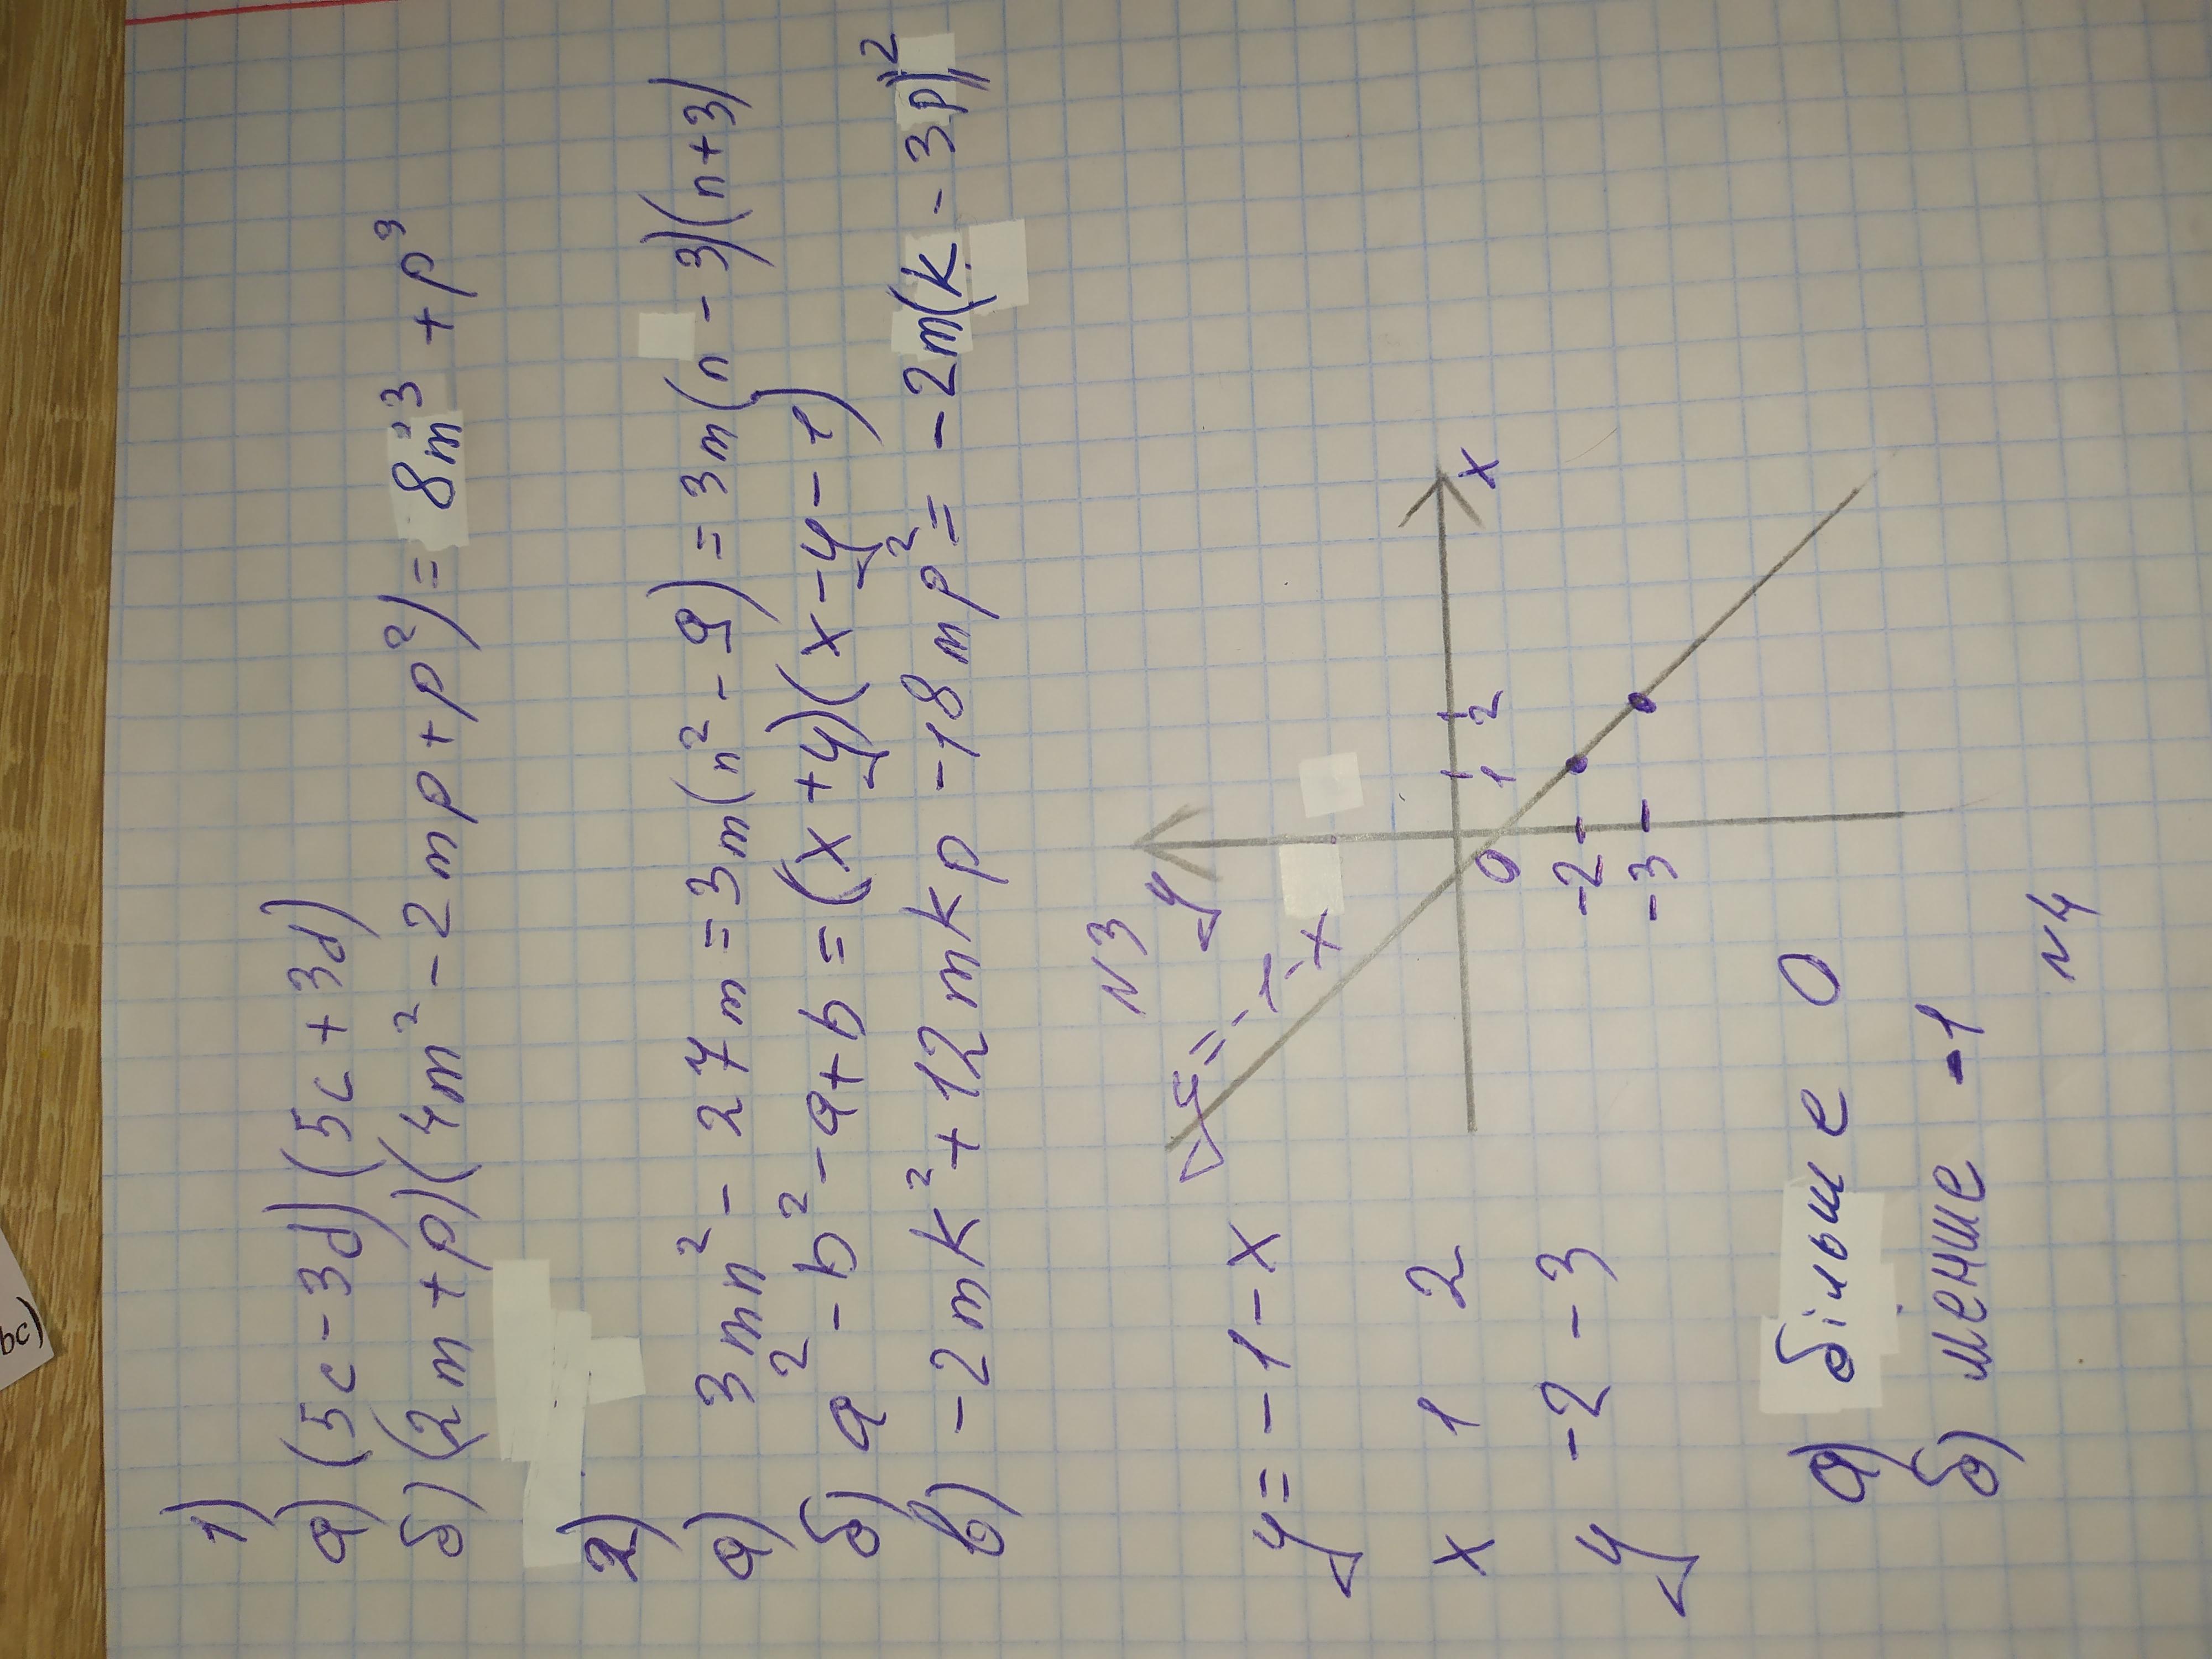 1)
а) (5c - 3d)(5c + 3d)
б) (2m + p)(4m² - 2mp + p²) = 8m³ + p³
2)
а) 3mn² - 27m = 3m(n² - 9) = 3m(n - 3)(n + 3)
б) a² - b² - a + b = (x + y)(x - y - 1)
в) -2mk² + 12mkp - 18mp² = -2m(k - 3p)²
N3
y = -1 - x
x 1 2
y -2 -3
y = -1 - x
y
x
0 1 2
-2
-3
а) більше 0
б) менше -1
N4
bc)